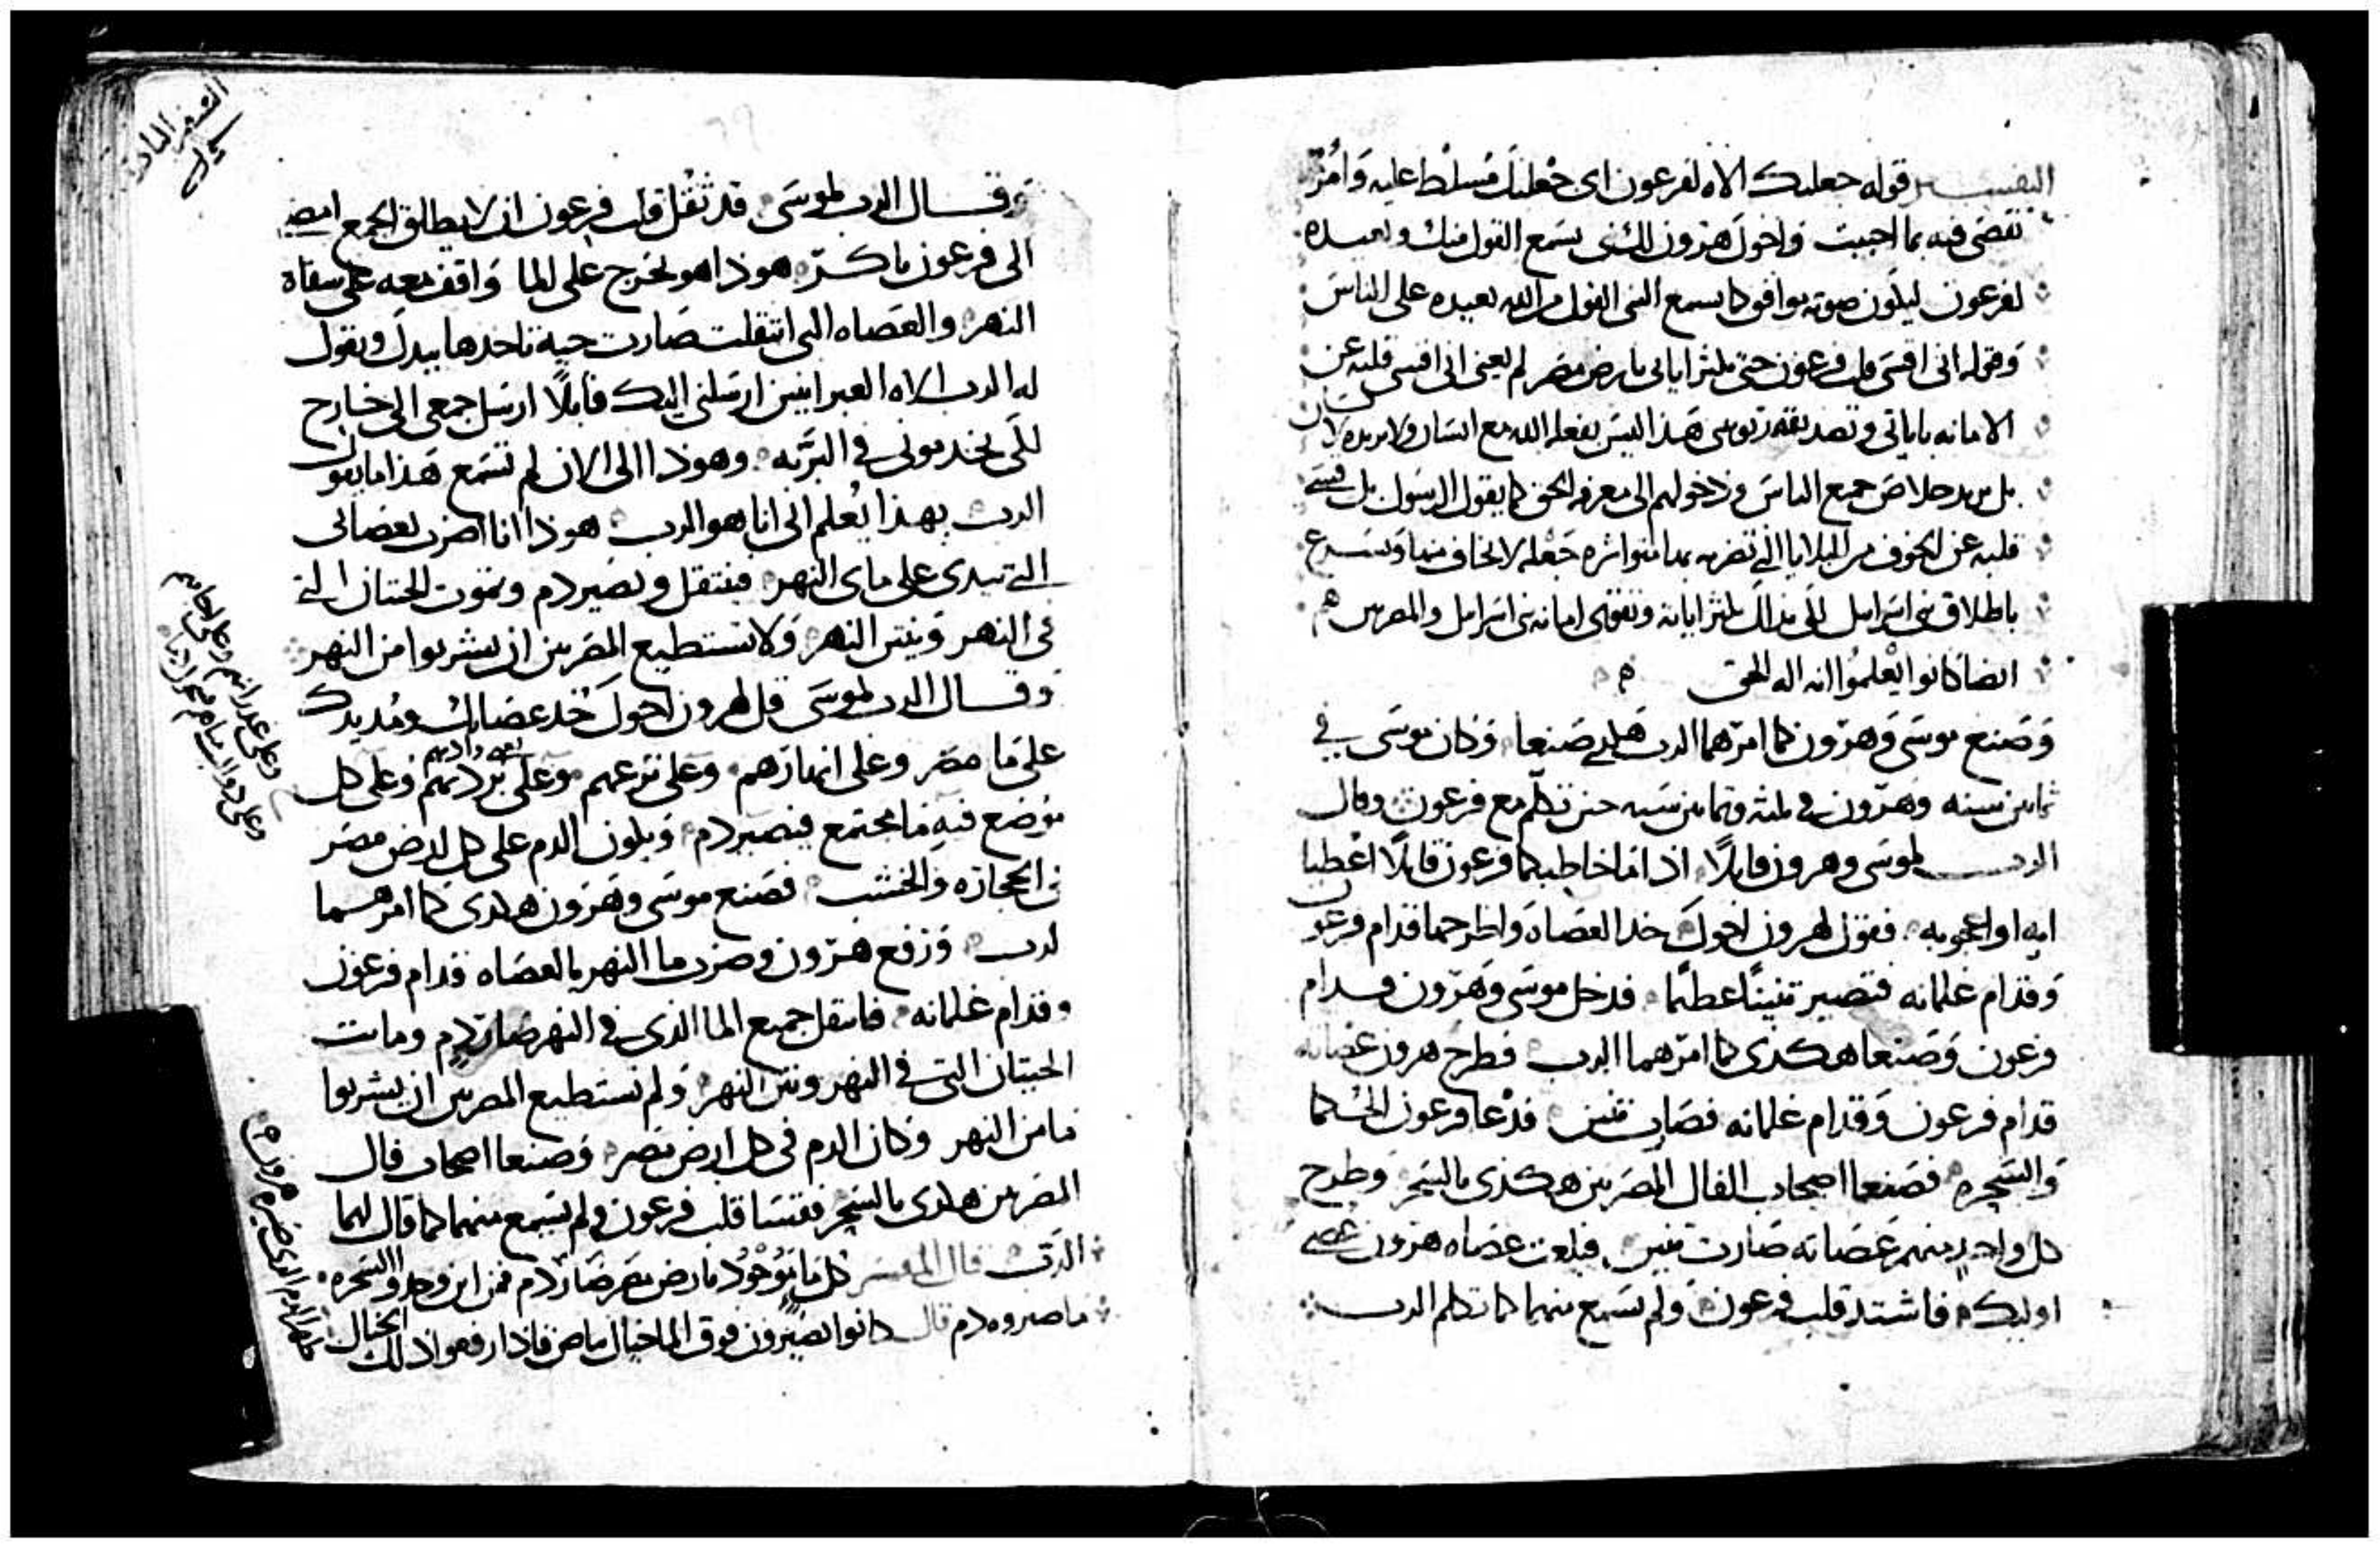 التفسير قوله جعلتك الاه لفرعون اى جعلتك مسلط عليه وامرتك
تقضى فيه بما احببت واخوك هرون لك نبى يسمع القول منك ويعيده
لفرعون ليكون صوته يوافق كما يسمع النبى القول من الله يعيده على الناس
وقوله انى اقسى قلب فرعون حتى تكثر اياتى بارض مصر لم يعنى انى اقسى قلبه عن
الامانه باياتى وتصديقه هذا ليس يفعله الله مع انسان ولا يريده لانسان
بل يريد خلاص جميع الناس ودخولهم الى معرفه الحق كما يقول الرسول بل قسى
قلبه عن الخوف من البلايا التى تضربه بها متواتره جعله لا يخاف منها ويسرع
باطلاق بنى اسرايل لكى بذلك تكثر اياته وتقوى امانه بنى اسرايل والمصريين هم
ايضا كانوا يعلموا انه اله الحق
وصنع موسى وهرون كما امرهما الرب هكدى صنعا وكان موسى فى
ثمانين سنه وهرون فى ثلثه وثمانين سنه حين تكلم مع فرعون وقال
الرب لموسى وهرون قايلا اذا ما خاطبكما فرعون قايلا اعطيا
ايه او اعجوبه فتقول لهرون اخوك خد العصاه واطرحها قدام فرعون
وقدام غلمانه فتصير تنينا عظيما فدخل موسى وهرون قدام
فرعون وصنعا هكدى كما امرهما الرب فطرح هرون عصاته
قدام فرعون وقدام غلمانه فصارت تنين فدعا فرعون الحكما
والسحره فصنعا اصحاب الفال المصريين هكدى بالسحر وطرح
كل واحد منهم عصاته صارت تنين فبلعت عصاه هرون عصى
اوليك فاشتد قلب فرعون ولم يسمع منهما كما تكلم الرب
السفر التانى
وقال الرب لموسى قد ثقل قلب فرعون ان لا يطلق الجمع امض
الى فرعون باكر هوذا هو يخرج على الما واقف معه على شفاه
النهر والعصاه التى انتقلت صارت حيه تاخدها بيدك وتقول
له الرب الاه العبرانيين ارسلنى اليك قايلا ارسل جمعى الى خارج
لكى يخدمونى فى البريه وهوذا الى الان لم تسمع هذا ما يقول
الرب بهذا تعلم انى انا هو الرب هوذا انا اضرب بعصاتى
التى بيدى على ماى النهر فينتقل ويصير دم وتموت الحيتان التى
فى النهر وينتن النهر ولا يستطيع المصريين ان يشربوا من النهر
وقال الرب لموسى قل لهرون اخوك خد عصاتك ومد يدك
على ما مصر وعلى انهارهم وعلى ترعهم وعلى بردتهم وعلى كل
موضع فيه ما مجتمع فيصير دم ويكون الدم على كل ارض مصر
فى الحجاره والخشب فصنع موسى وهرون هكدى كما امرهما
الرب ورفع هرون وضرب ما النهر بالعصاه قدام فرعون
وقدام غلمانه فانتقل جميع الما الذى فى النهر صار دم وماتت
الحيتان التى فى النهر ونتن النهر ولم تستطيع المصريين ان يشربوا
ما من النهر وكان الدم فى كل ارض مصر وصنعا اصحاب فال
المصريين هكدى بالسحر فقسا قلب فرعون ولم يسمع منهما كما قال لهما
الرب قال المفسر كل ما موجود بارض مصر صار دم فمن اين وجدوا السحره
ما صيروه دم قال كانوا يصيرون فوق الما خيال ما فاذا رفعوا ذلك الخيال